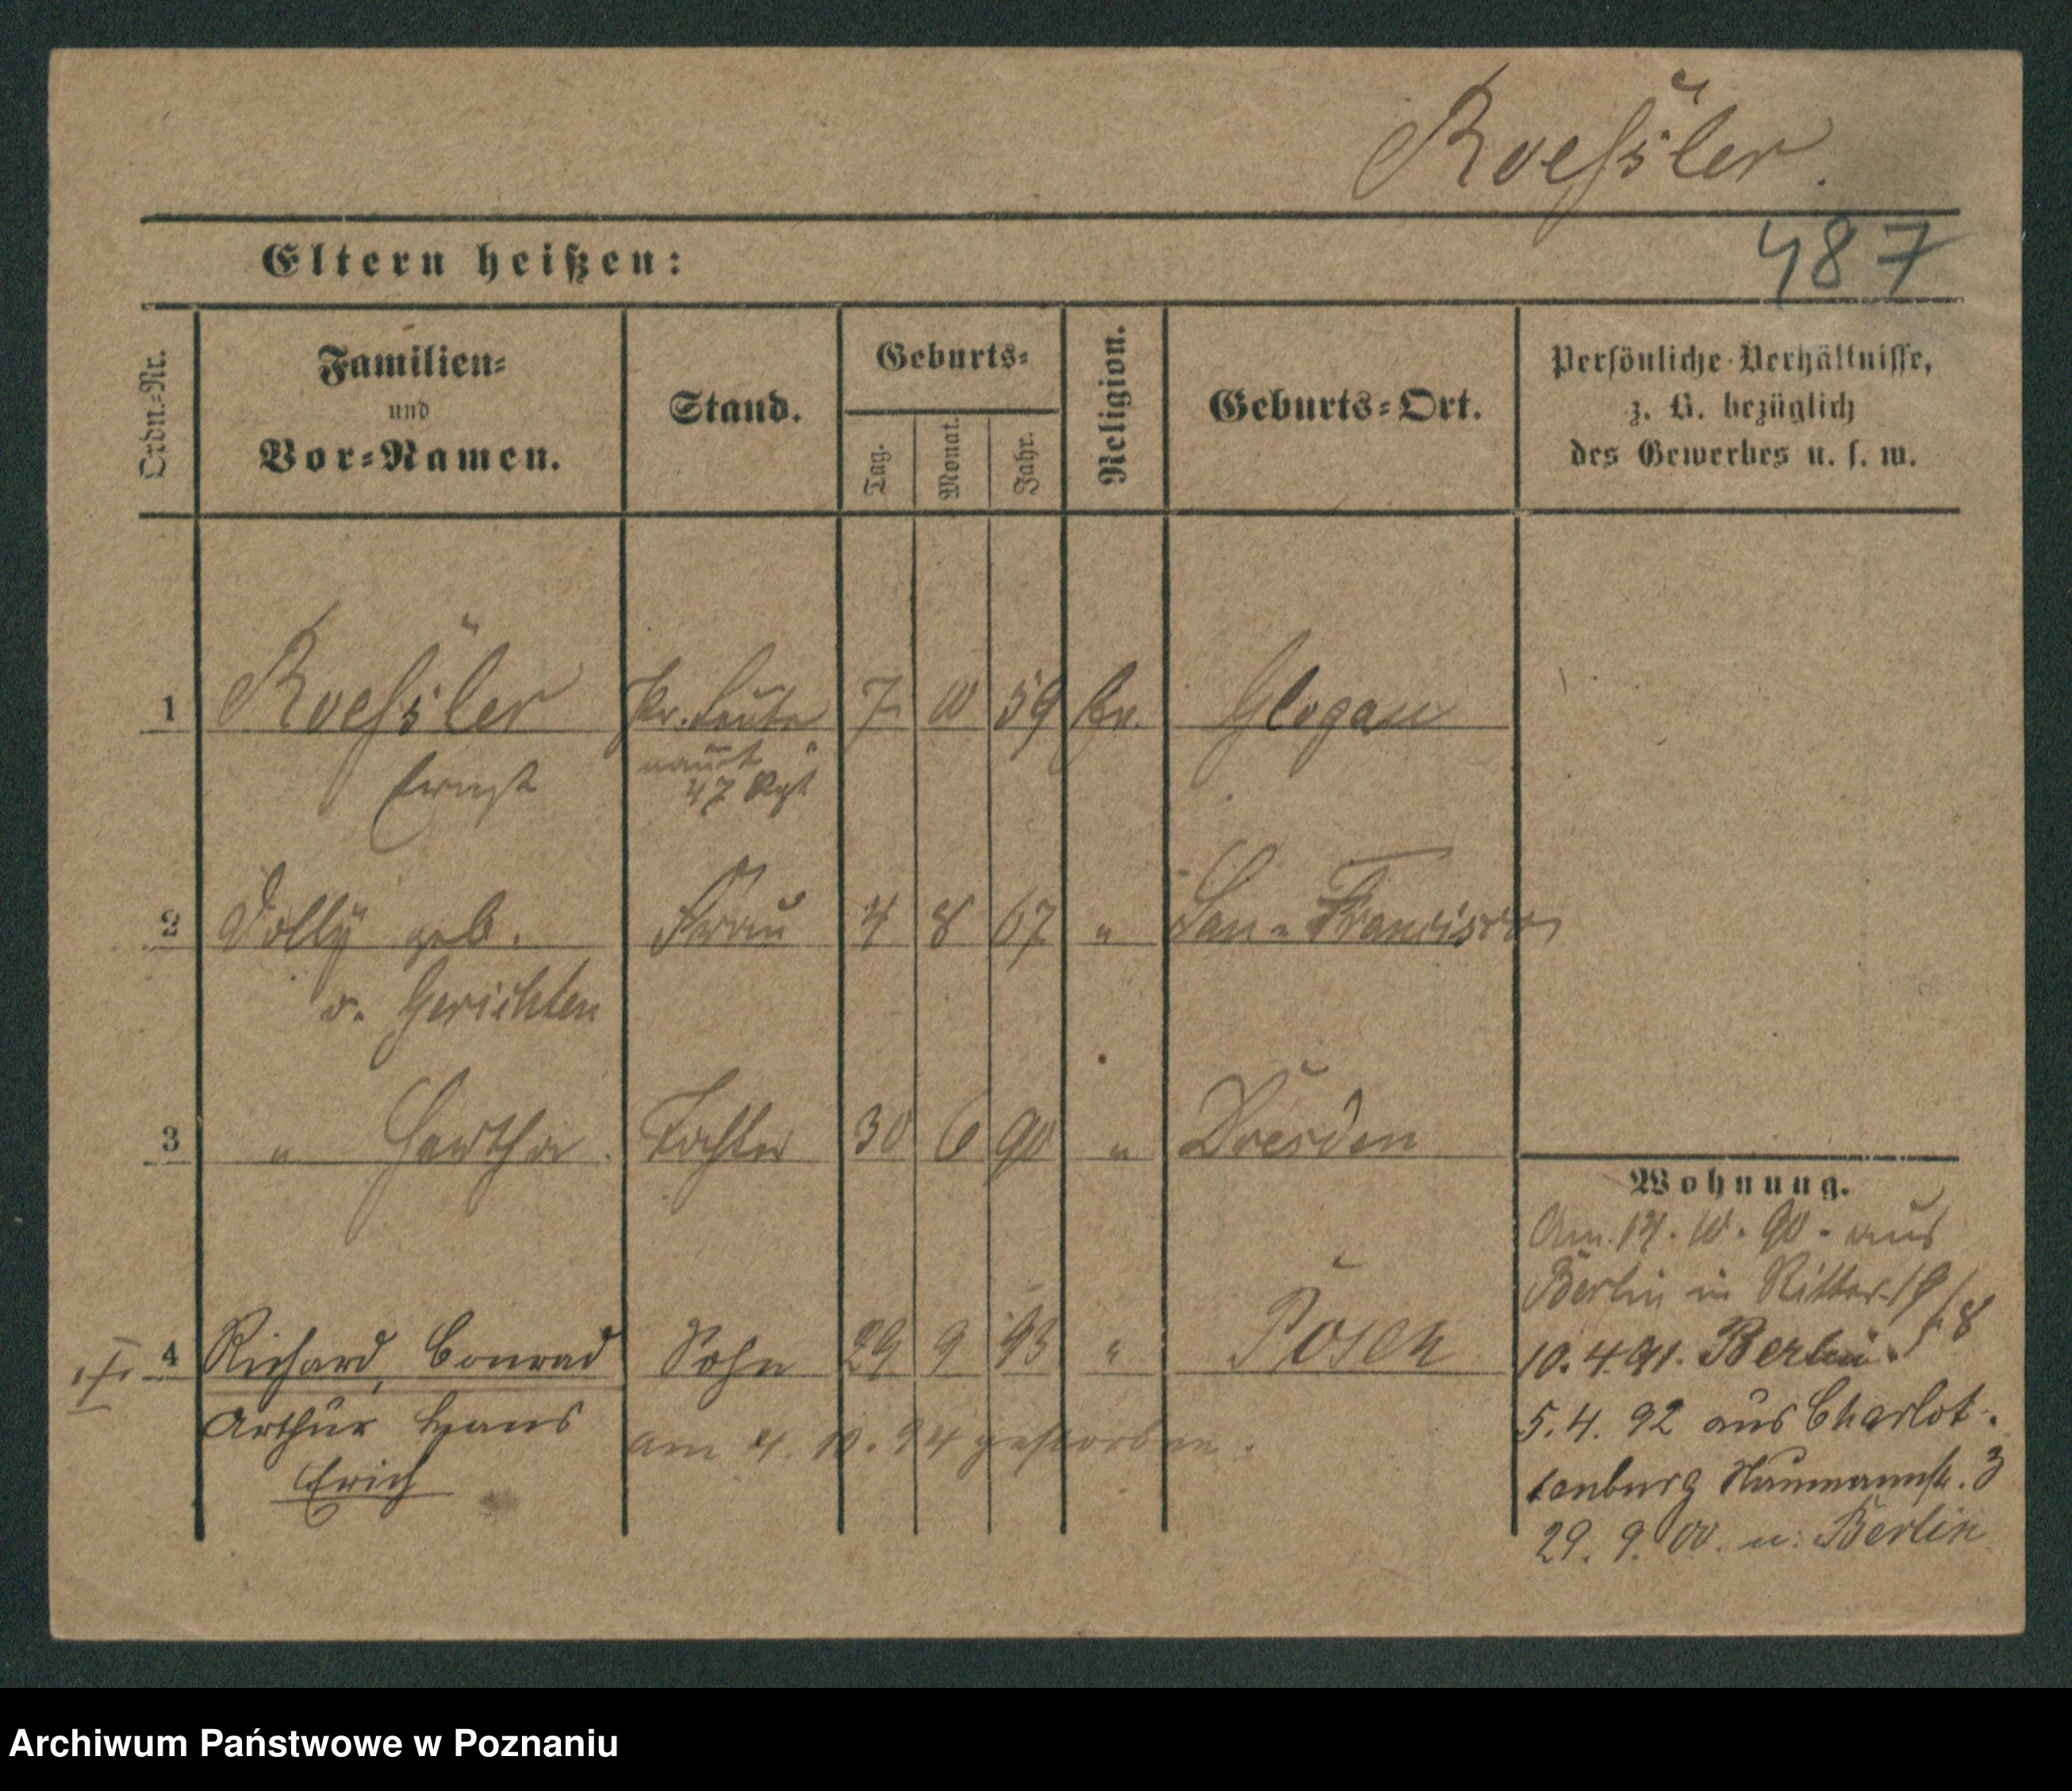 Roeßler.
487
Eltern heißen:
Ordn.=Nr.
Familien=
und
Vor=Namen.
Stand.
Geburts=
Tag.
Monat.
Jahr.
Religion.
Geburts=Ort.
Persönliche Verhältnisse,
z. B. bezüglich
des Gewerbes u. s. w.
1 Roeßler Pr. Leute 7 10 59 Ev. Glogau
Ernst nant
47 Rgt
2 Dolly geb. Frau 4 8 67 " San=Francisco
v. Gerichten
3 " Hertha. Tochter 30 6 90 " Dresden
Wohnung.
Am 17. 10. 90. aus
Berlin in Ritterstr
4 Richard, Conrad Sohn 29 9 93 " Posen
10. 4. 91. Berlin.
Arthur Hans
5. 4. 92 aus Charlot-
am 4. 10. 94 gestorben.
Erich
tenburg Naumannstr. 3
29. 9. 00. n. Berlin
Archiwum Państwowe w Poznaniu